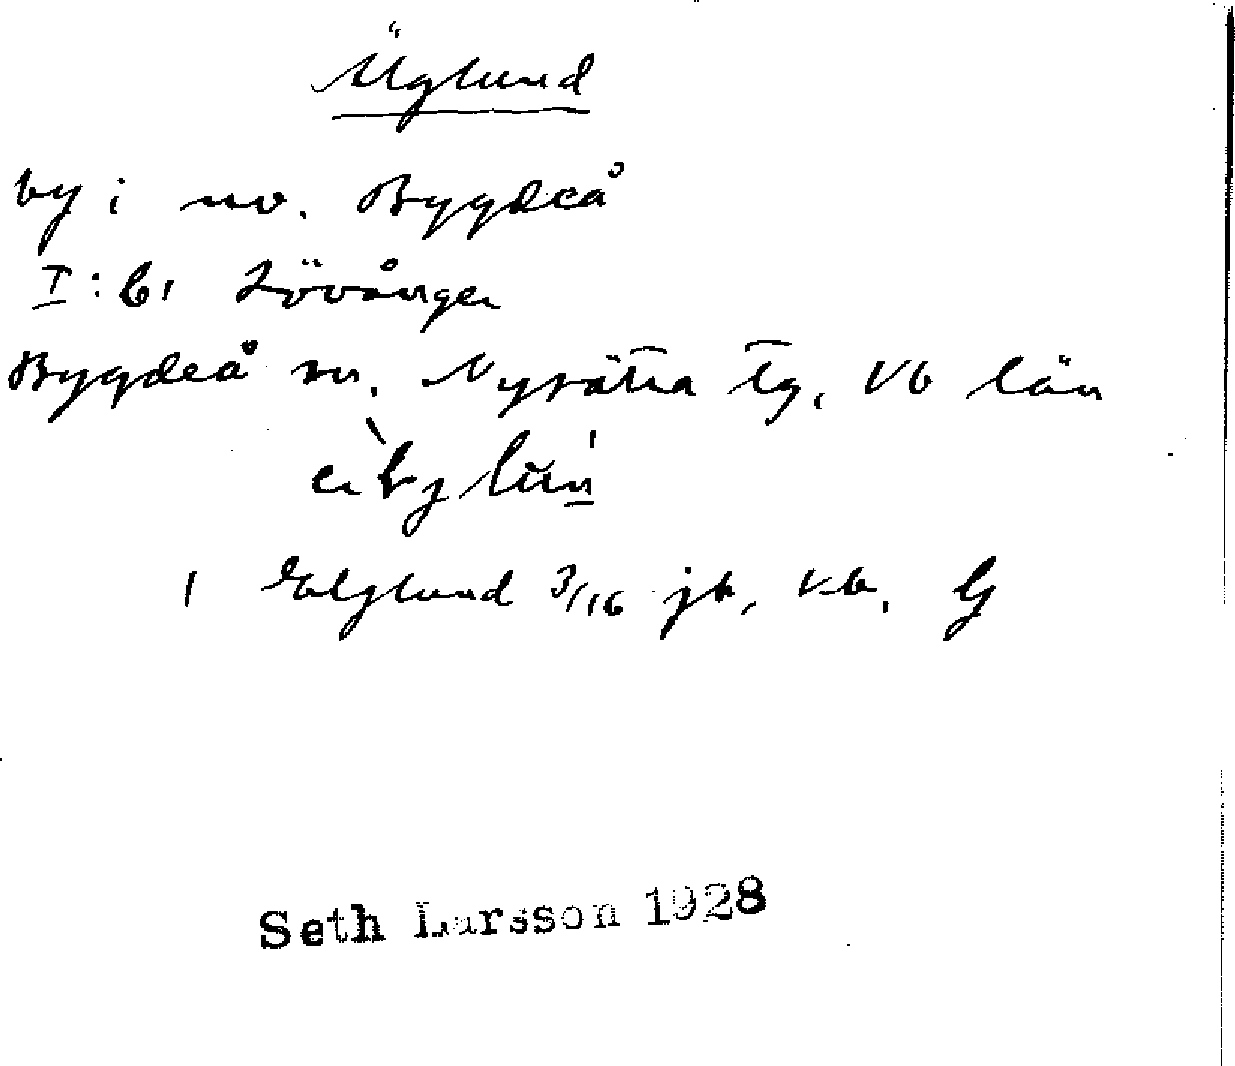 Äglund
by i nv. Bygdeå
I:61 Lövånger
Bygdeå sn. Nysätra tg, Vb län
1 Elglund 3/16 jb, Vb. G
Seth Larsson 1928